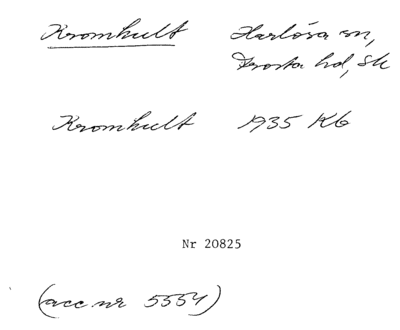 Kromhult Harlösa sn,
Frosta hd, Sk
Kromhult 1935 Kb
Nr 20825
(acc. nr 5554)